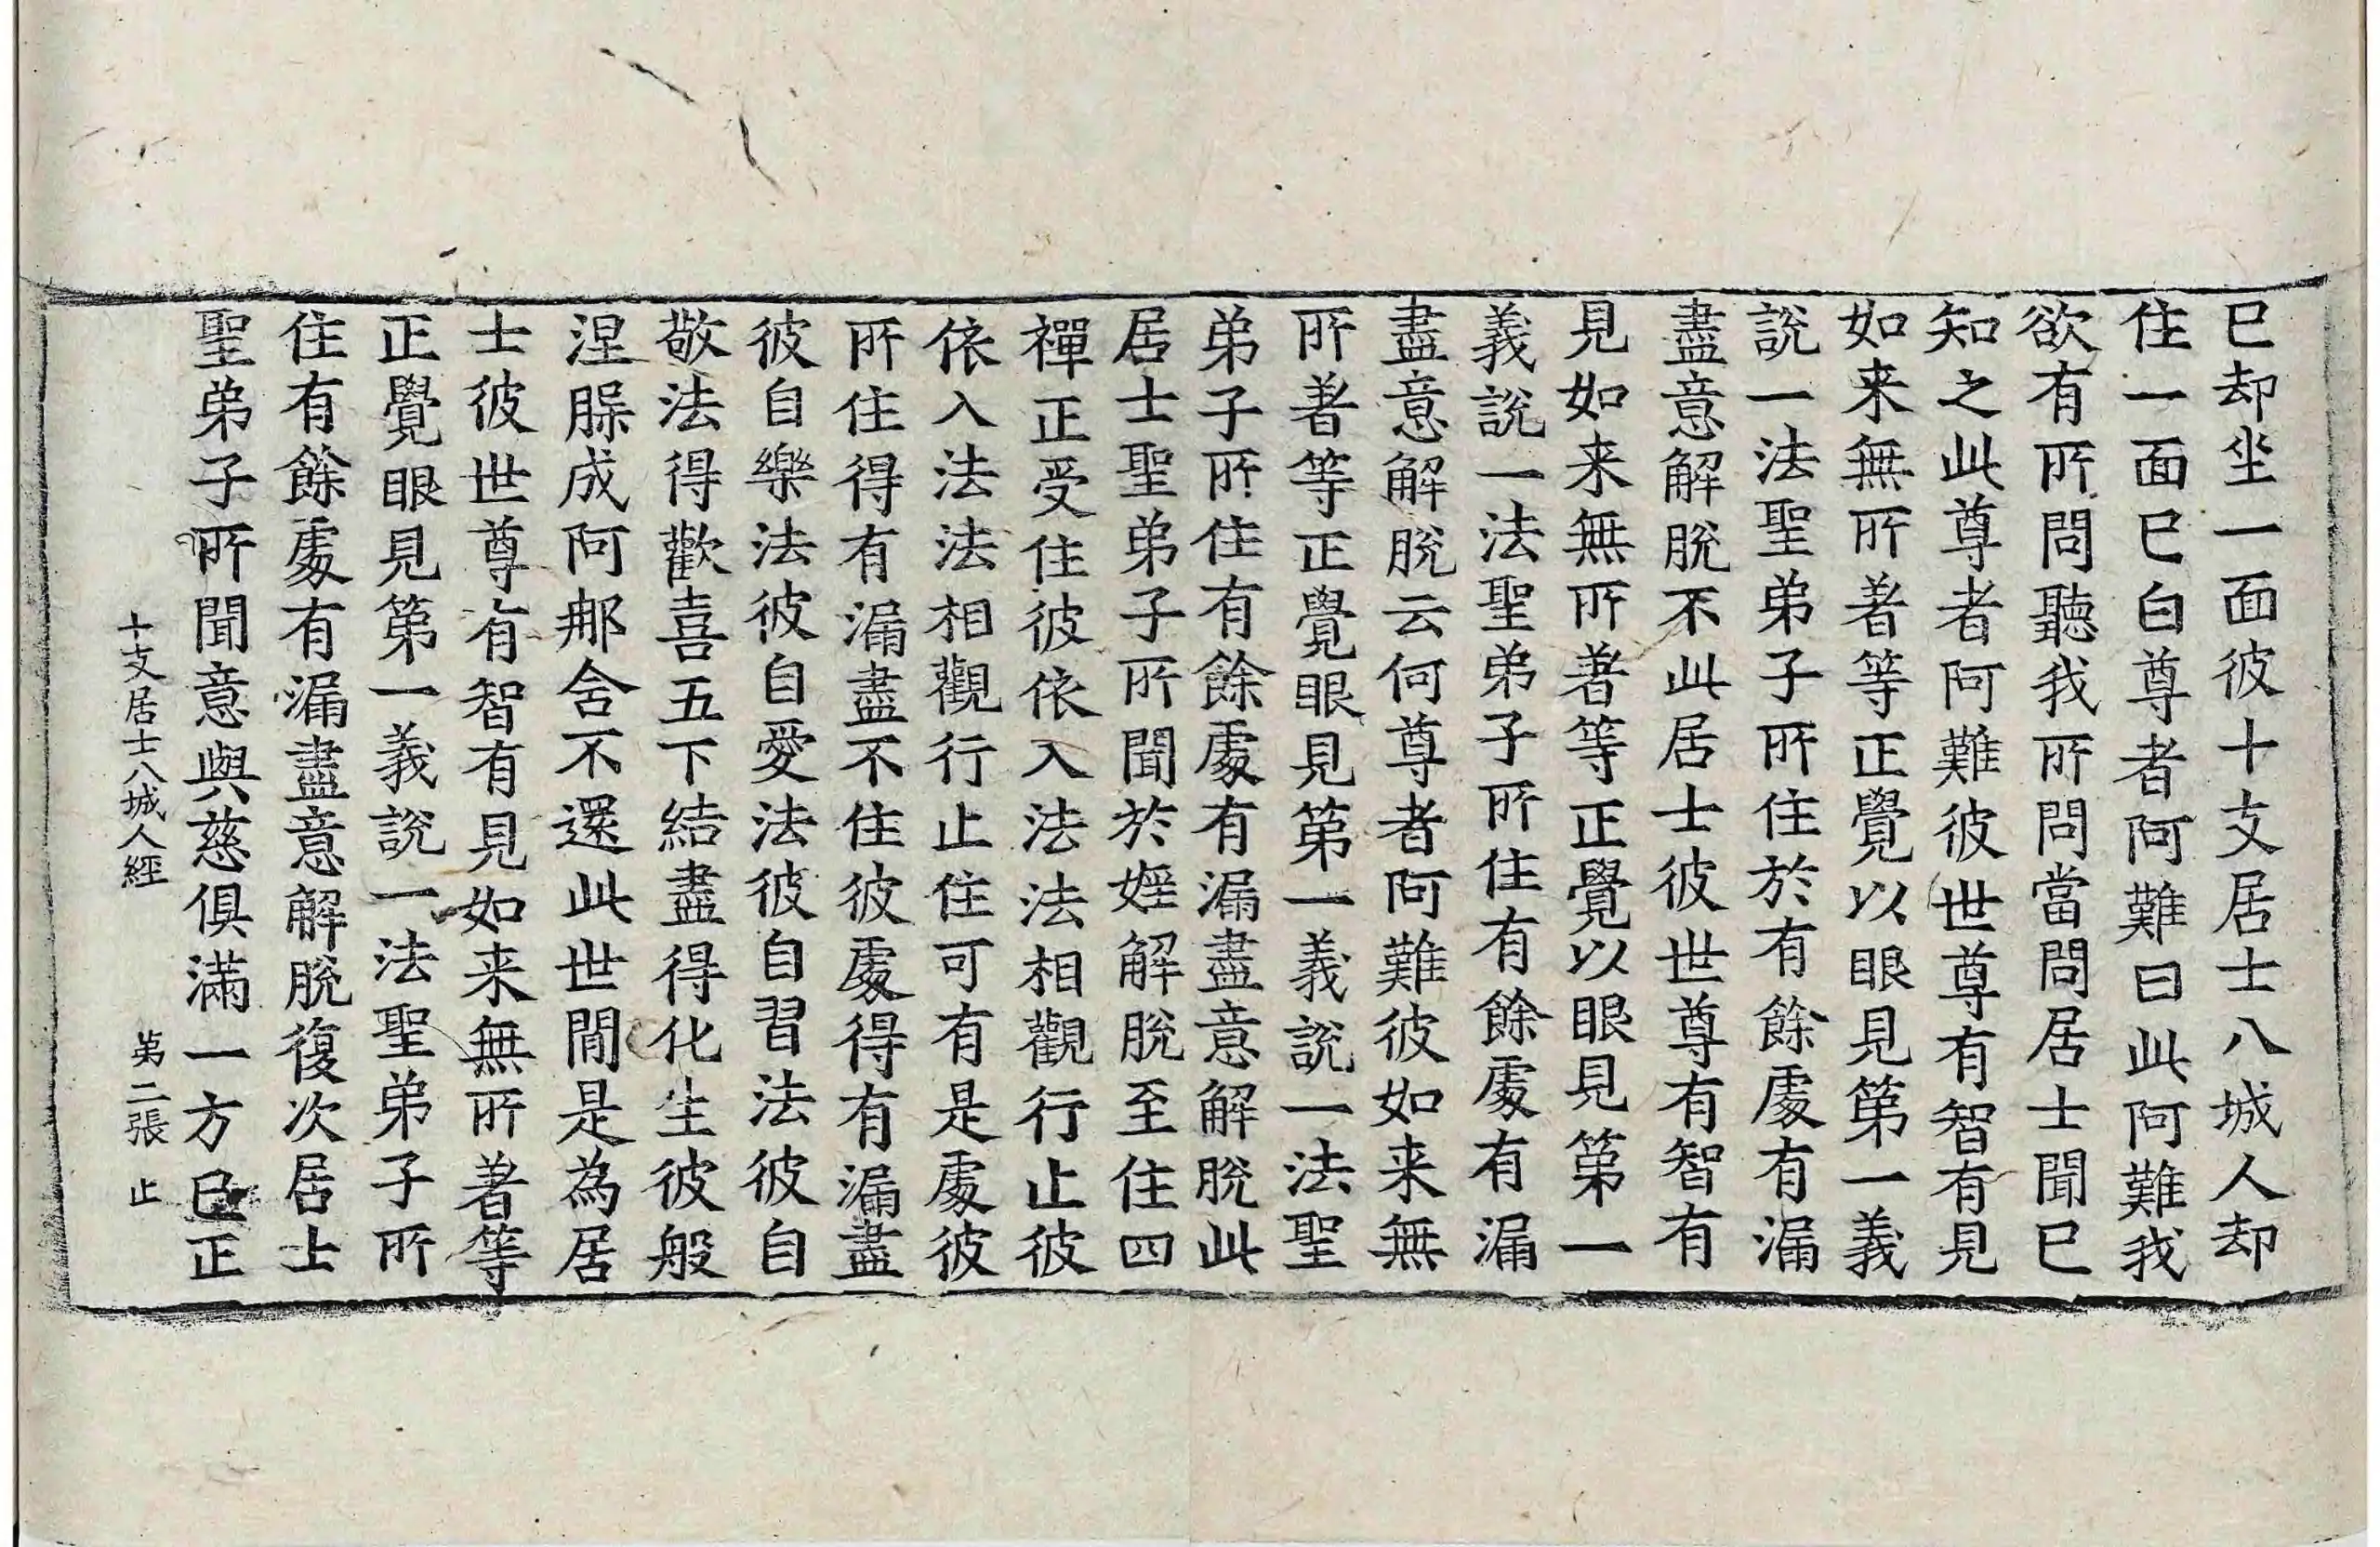 已却坐一面彼十支居士八城人却
住一面已白尊者阿難曰此阿難我
欲有所問聽我所問當問居士聞已
知之此尊者阿難彼世尊有智有見
如来無所著等正覺以眼見第一義
說一法聖弟子所住於有餘處有漏
盡意解脫不此居士彼世尊有智有
見如来無所著等正覺以眼見第一
義說一法聖弟子所住有餘處有漏
盡意解脫云何尊者阿難彼如来無
所著等正覺眼見第一義說一法聖
弟子所住有餘處有漏盡意解脫此
居士聖弟子所聞於婬解脫至住四
禪正受住彼依入法法相觀行止彼
依入法法相觀行止住可有是處彼
所住得有漏盡不住彼處得有漏盡
彼自樂法彼自愛法彼自習法彼自
敬法得歡喜五下結盡得化生彼般
涅臊成阿那含不還此世間是為居
士彼世尊有智有見如来無所著等
正覺眼見第一義說一法聖弟子所
住有餘處有漏盡意解脫復次居士
聖弟子所聞意與慈俱滿一方已正
十支居士八城人經 第二張 止